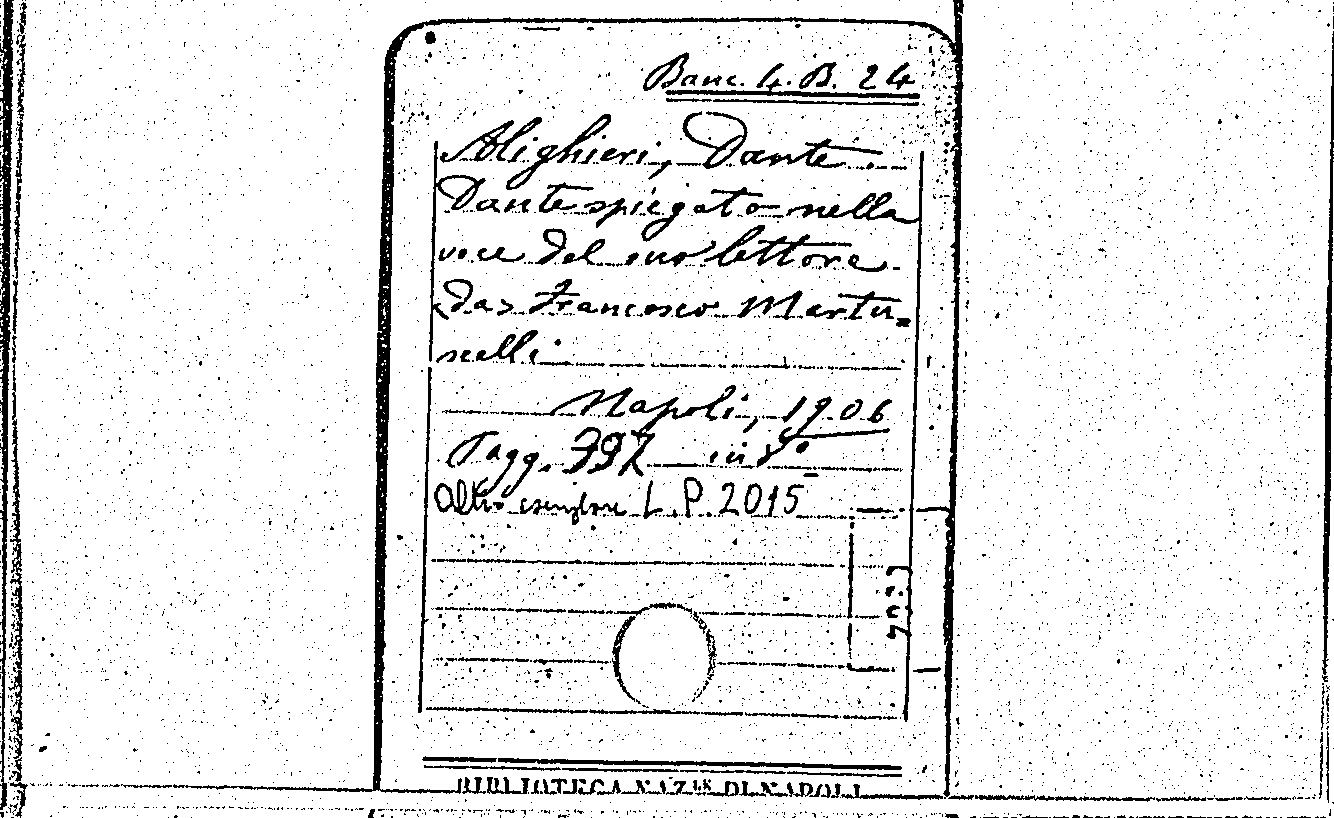 Banc. 4. B. 24
Alighieri, Dante.
Dante spiegato nella
voce del suo lettore
da Francesco Martu=
scelli
Napoli, 1906
Pagg. 397 in 8°
Altro esemplare L.P. 2015
BIBLIOTECA NAZ.LE DI NAPOLI